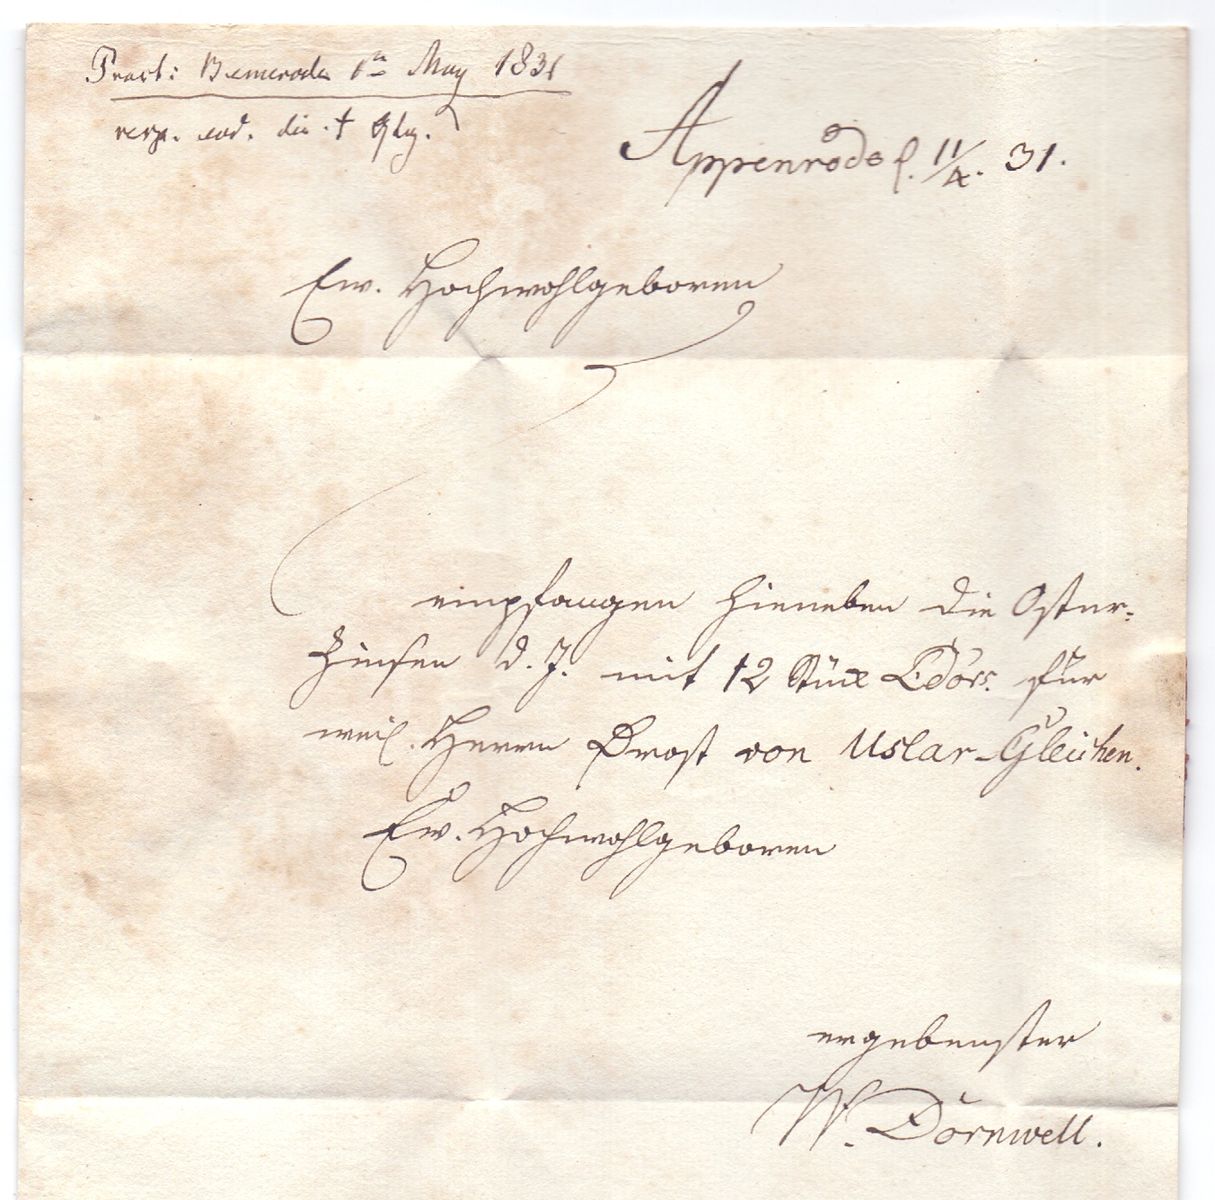 Praest: Bemerode 1n May 1831
resp. eod. die.
Appenrode d. 11/4. 31.
Ew. Hochwohlgeboren
empfangen hieneben die Oster-
Zinsen d. J. mit 12 Stück Ldörs. für
weil. Herrn Drost von Uslar-Gleichen.
Ew. Hochwohlgeboren
ergebenster
W. Dörnwell.